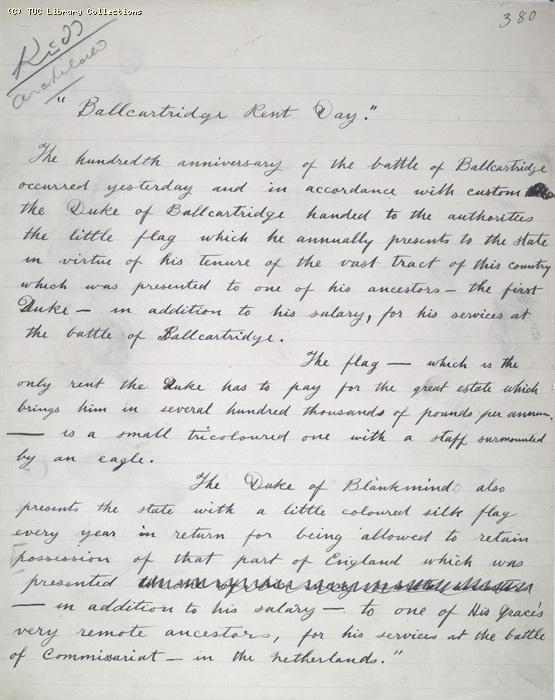 (C) TUC Library Collections
380
"Ballcartridge Rent Day."
The hundredth anniversary of the battle of Ballcartridge
occurred yesterday and in accordance with custom
the Duke of Ballcartridge handed to the authorities
the little flag which he annually presents to the State
in virtue of his tenure of the vast tract of this country
which was presented to one of his ancestors — the first
Duke — in addition to his salary, for his services at
the battle of Ballcartridge.
The flag — which is the
only rent the Duke has to pay for the great estate which
brings him in several hundred thousands of pounds per annum.
— is a small tricoloured one with a staff surmounted
by an eagle.
The Duke of Blankmind also
presents the state with a little coloured silk flag
every year in return for being allowed to retain
possession of that part of England which was
presented
— in addition to his salary — to one of His Grace's
very remote ancestors, for his services at the battle
of Commissariat — in the Netherlands."